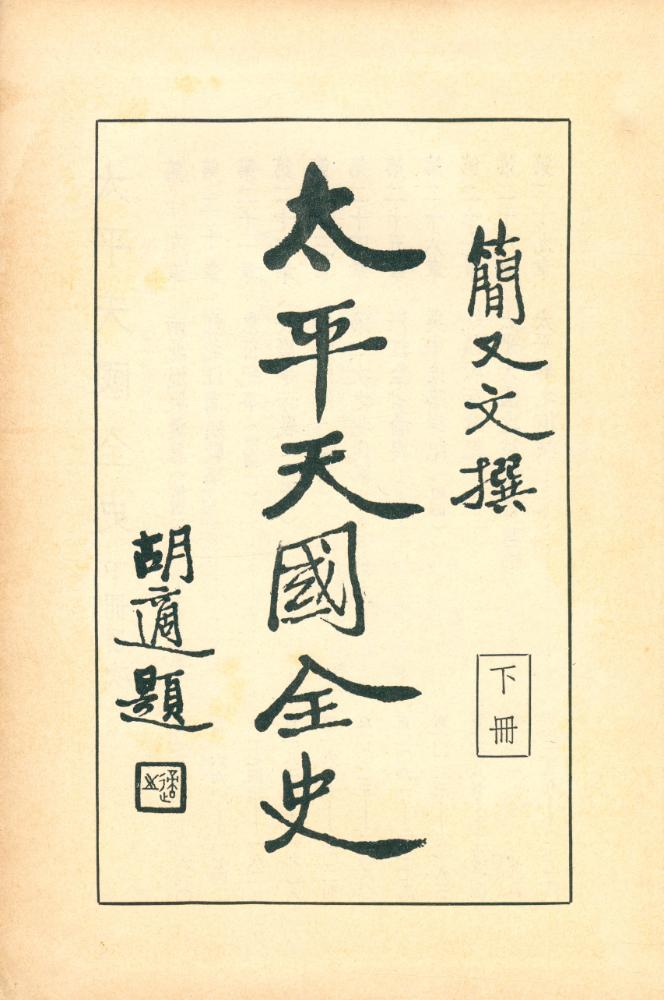 簡又文撰
下冊
太平天國全史
胡適題